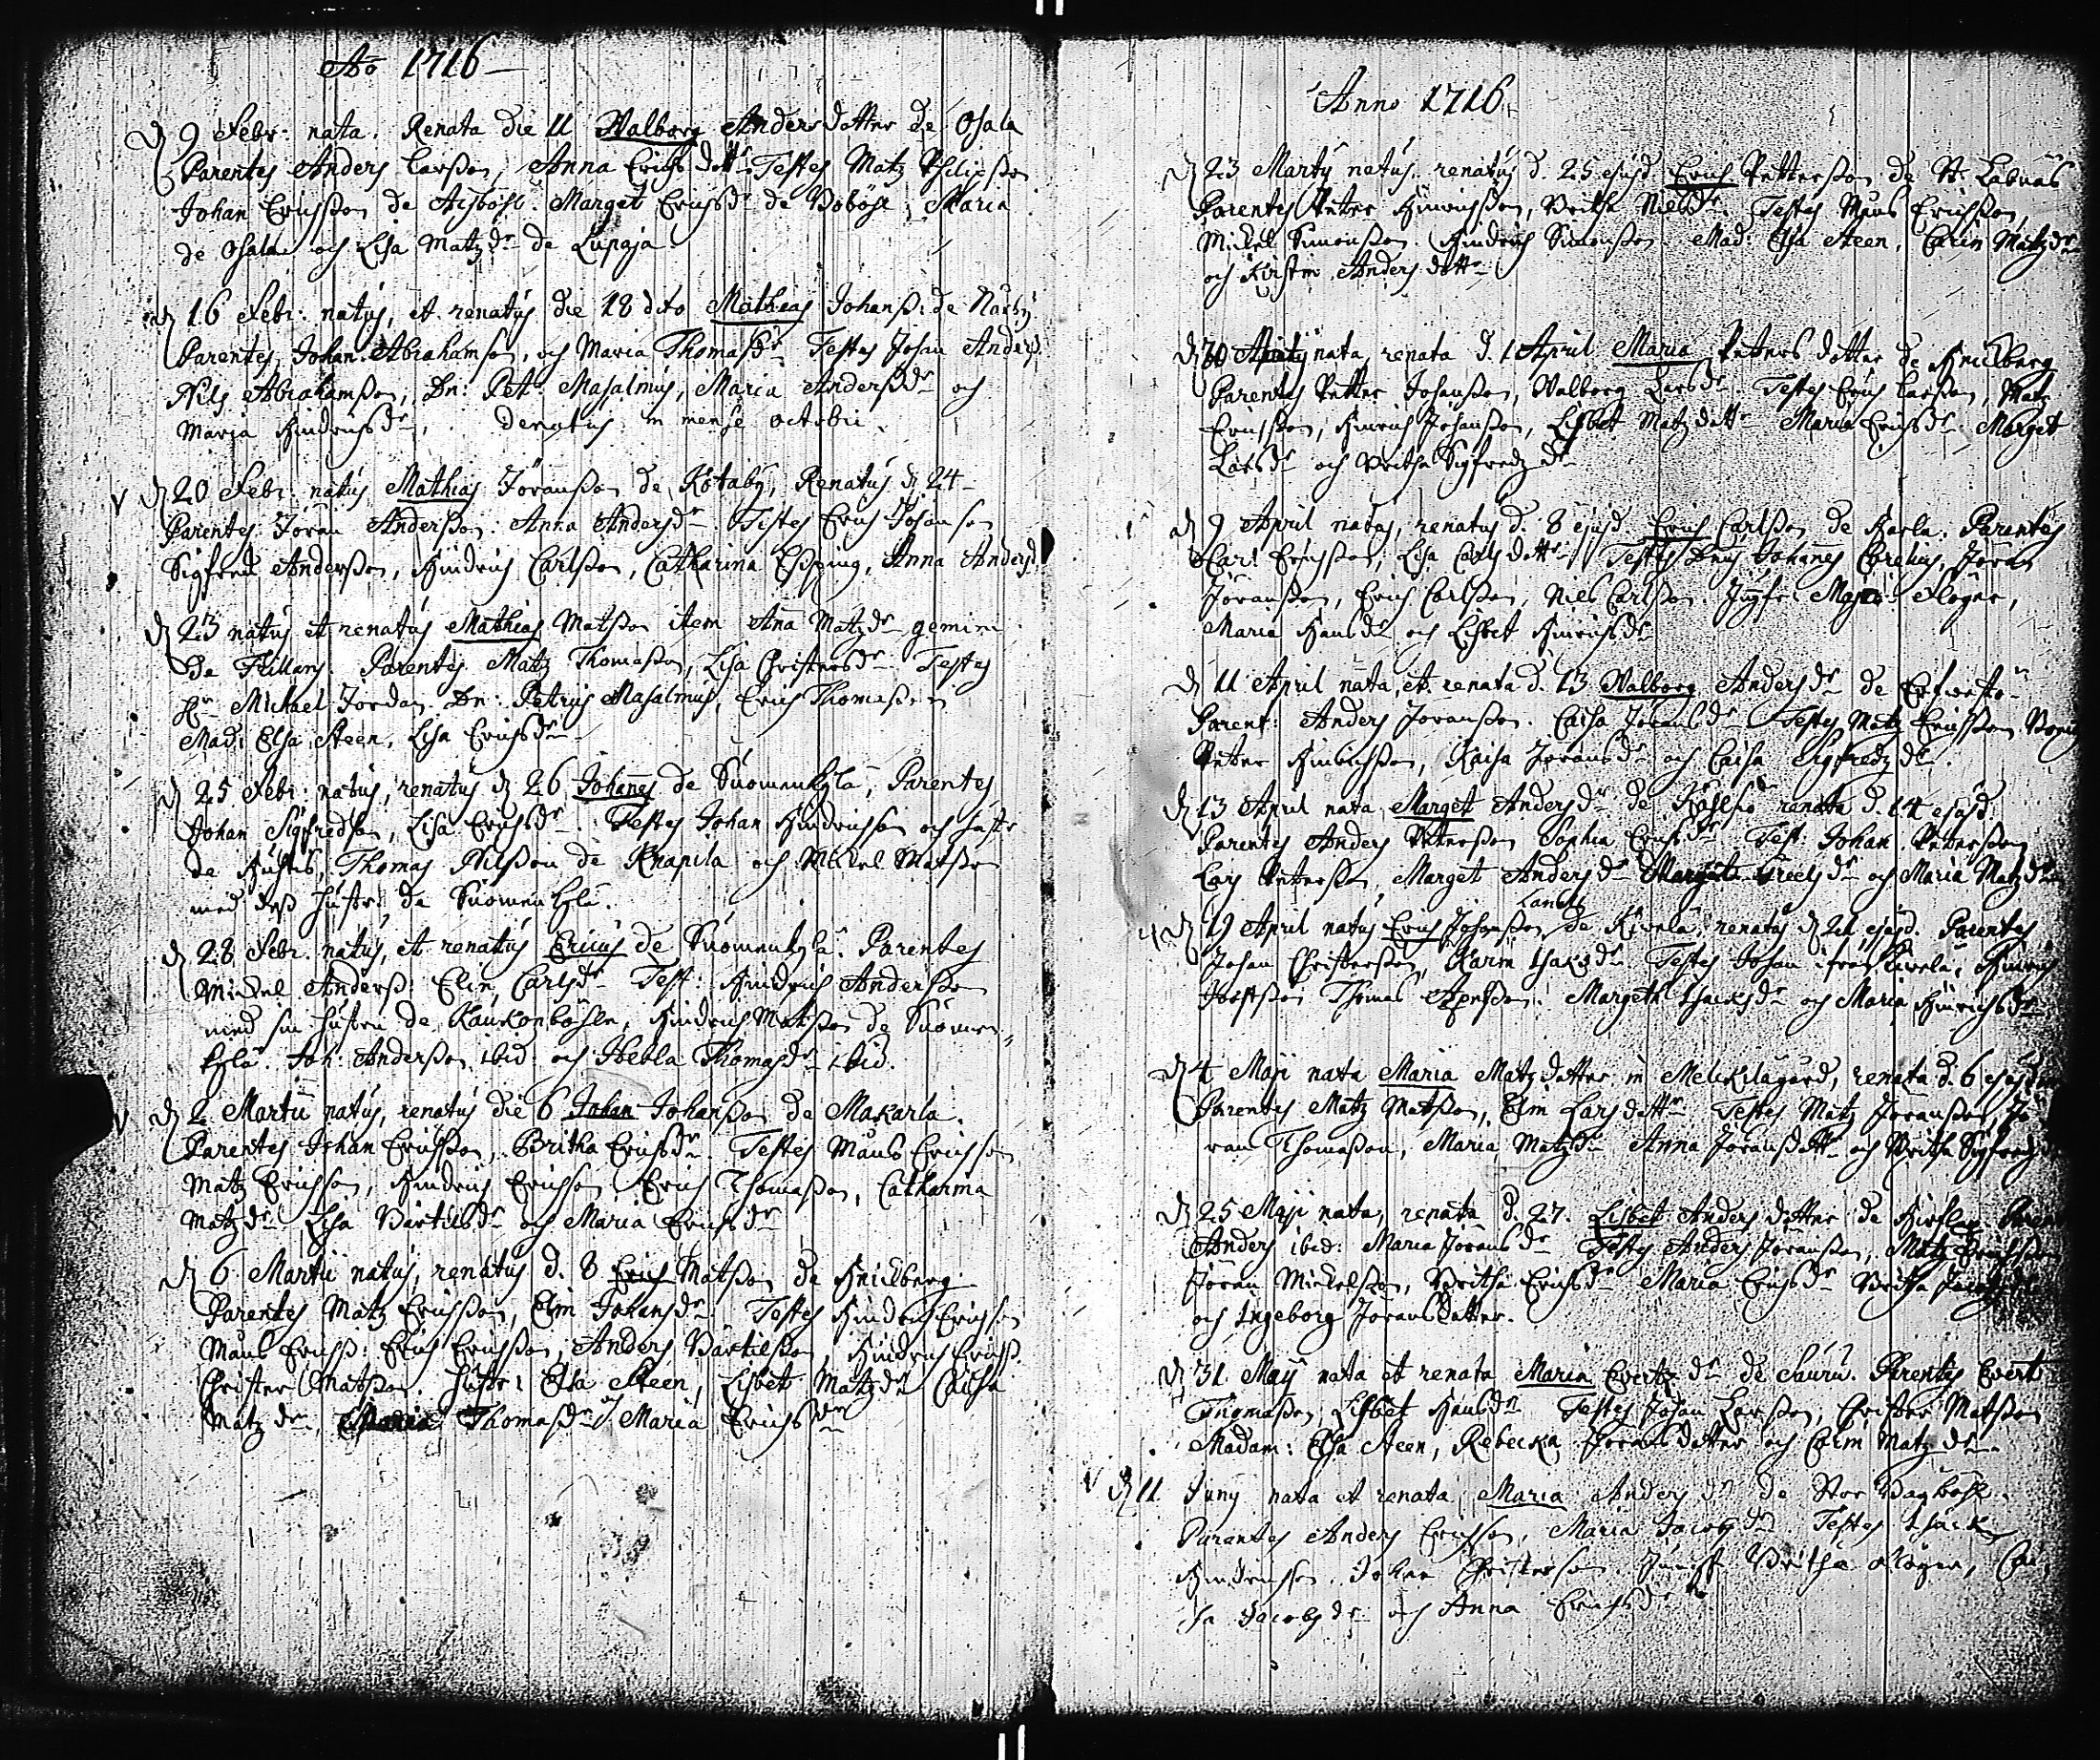 Ao 1716
D 9 Febr: nata. Renata die 11 Walborg Andersdotter de Osala
Parentes Anders Larsson, Anna Erichsdotter Testes Matz Philipsson
Johan Erichsson de Marget Erichsdr de Boböle, Maria
de Osala och Lisa Matzdr de
D 16 Febr: natus, et renatus die 18 dito Mathias Johanss: de Näseby
Parentes Johan Abrahamson, och Maria Thomasdr Testes Johan Anders
Nils Abrahamsson, Dn: Pet: Masalinus, Maria Andersdr och
Maria Hindrichsdr, denatus in mense octobri
V D 20 Febr: natus Mathias Jöransson de Kotaby, Renatus D 24
Parentes Jöran Andersson: Anna Andersdr Testes Erich Johanson
Sigfred Andersson, Hindrich Carlsson, Catharina Esping, Anna Andersd
D 23 natus et renatus Mathias Matsson item Ana Matzdr gemini
de Parentes Matz Thomasson, Lisa Christersdr Testes
Hr Mickael Jordan Dn: Petrus Masalinus, Erich Thomasson
Mad: Elsa Steen, Lisa Erichsdr
D 25 Febr: natus, renatus D 26 Johanes de Suomenkylä, Parentes
Johan Sigfredson, Lisa Erichsdr. Testes Johan Hindrichson och hustr
de Thomas Nilsson de Knapila och Mickel Matsson
med dess hustr: de Suomenkylä.
D 28 Febr. natus, et renatus Ericus de Suomenkylä. Parentes
Mickel Anderss: Elin Carlsdr Test: Hindrich Andersson
med sin hustru de Kaukonböhle, Hindrich Matsson de Suomen,,
kylä. Joh: Andersson ibid: och Hebla Thomasdr ibid.
V D 2 Martii natus, renatus die 6 Johan Johansson de Makarla.
Parentes Johan Erichsson, Britha Erichsdr. Testes Måns Erichson
Matz Erichson, Hindrich Erichson Erich Thomasson, Catharina
Matzdr Lisa Bärtilsdr och Maria Erichsdr
D 6 Martii natus, renatus d. 8 Erich Matsson de Knickberg
Parentes Matz Erichsson, Elin Johansdr Testes Hindrich Erichson
Måns Erichss: Erich Erichsson, Anders Bärtilsson Hindrich Erichss.
Christer Matsson. hustr: Elsa Steen, Lisbet Matzdr Caisa
Matzdr, Thomasdr och Maria Erichsdr
Anno 1716
D 23 Martij natus. renatus d. 25 ejusd Erich Pettersson de St: Labnäs
Parentes Petter Hinrichsson, Britha Nielsdr. Testes Måns Erichsson,
Mickel Simonsson. Hindrich Simonsson. Mad: Elsa Steen, Carin Matzdr
och Kirstin Andersdottr
D 30 nata, renata d. 1 April Maria Pettersdotter de Knickberg
Parentes Petter Johansson, Walborg Larsdr Testes Erich Larsson, Matz
Erichsson, Hinrich Johansson, Lisbet Matzdottr Maria Erichsdr Marget
Larsdr och Britha Sigfredzdr
D 7 April natus, renatus d. 8 ejusd Erich Carlsson de Karla. Parentes
Carl Erichsson, Lisa Carlsdottr Testes Dnus Johanes Jöran
Jöransson, Erich Carlsson, Niels Carlsson. Jungfr. Maria Flöger,
Maria Hansdr och Lisbet Hinrichsdr
D 11 April nata, et renata d. 13 Walborg Andersdr de
Parent: Anders Joransson. Caisa Joransdr Testes Matz Erichsson
Petter Hinrichsson, Kaisa Joransdr och Caisa Sigfredzdr.
D 13 April nata Marget Andersdr de renata d. 14 ejusd.
Parentes Anders Pettersson Sophia Erichsdr Test: Johan Pettersson
Lars Pettersson Marget Andersdr Marget Greelsdr och Maria Matzdr
D 19 April natus Erich Johansson de Kivelä renatus D 21 ejusd. Parentes
Johan Christersson, Karin Isaksdr Testes Johan ifrån Kivelä, Hinrich
Thomas Margeth Isacksdr och Maria Hinrichsdr
D 4 Maji nata Maria Matzdotter in Mellkilagård, renata d. 6 ejusd
Parentes Matz Matsson, Elin Larsdottr Testes Matz Joransson, Jö
ran Thomasson, Maria Matzdr Anna Joransdottr och Britha Sigfredzd
D 25 Maji nata, renata d. 27. Lisbet Andersdotter de
Anders ibid: Maria Joransdr Testes Anders Joransson, Matz Erichsson
Jöran Mickelsson, Britha Erichsdr Maria Erichsdr Britha
och Ingeborg Joransdotter.
D 31 Maij nata et renata Maria Evertzdr de Parentes Evert
Thomasson, Lisbet Hansdr Testes Johan Larsson, Christer Matsson
Madam: Elsa Steen, Rebecka Joransdotter och Carin Matzdr
V D 11 Juny nata et renata, Maria Andersdr de Stor Bagböhl.
Parentes Anders Erichsson, Maria Jacobsdr Testes Isack
Hindrichson. Johan Christerson. Jungf: Britha Flöger, Cai,
sa Jacobsdr och Anna Erichsdr